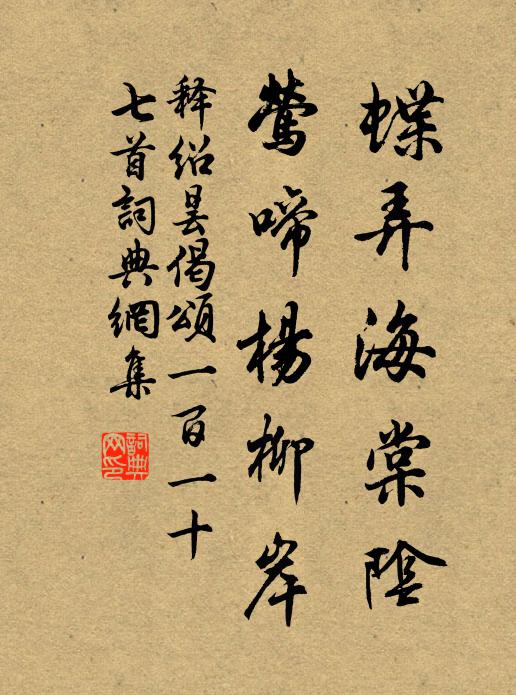 蝶弄海棠陰
鶯啼楊柳岸
釋紹曇偈頌一百一十
七首詞典網集
詞典网印